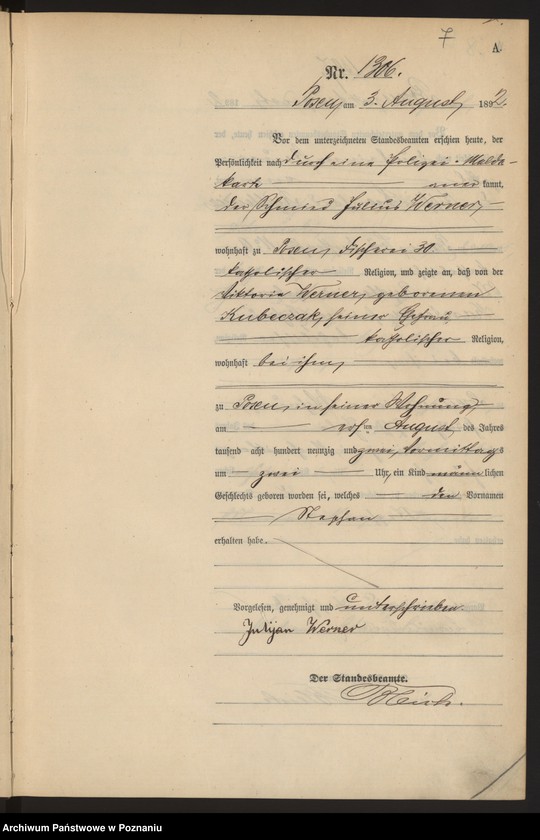 7
A.
Nr. 1306.
Posen, am 3. August 1892.
Vor dem unterzeichneten Standesbeamten erschien heute, der
Persönlichkeit nach durch eine Polizei-Melde-
karte anerkannt,
der Schmied Julius Werner,
wohnhaft zu Posen, Fischerei 30
katholischer Religion, und zeigte an, daß von der
Viktoria Werner, geborenen
Kubeczak, seiner Ehefrau
katholischer Religion,
wohnhaft bei ihm,
zu Posen, in seiner Wohnung,
am ersten August des Jahres
tausend acht hundert neunzig und zwei, Vormittags
um zwei Uhr, ein Kind männlichen
Geschlechts geboren worden sei, welches den Vornamen
Stephan
erhalten habe.
Vorgelesen, genehmigt und unterschrieben
Julijan Werner
Der Standesbeamte.
Archiwum Państwowe w Poznaniu